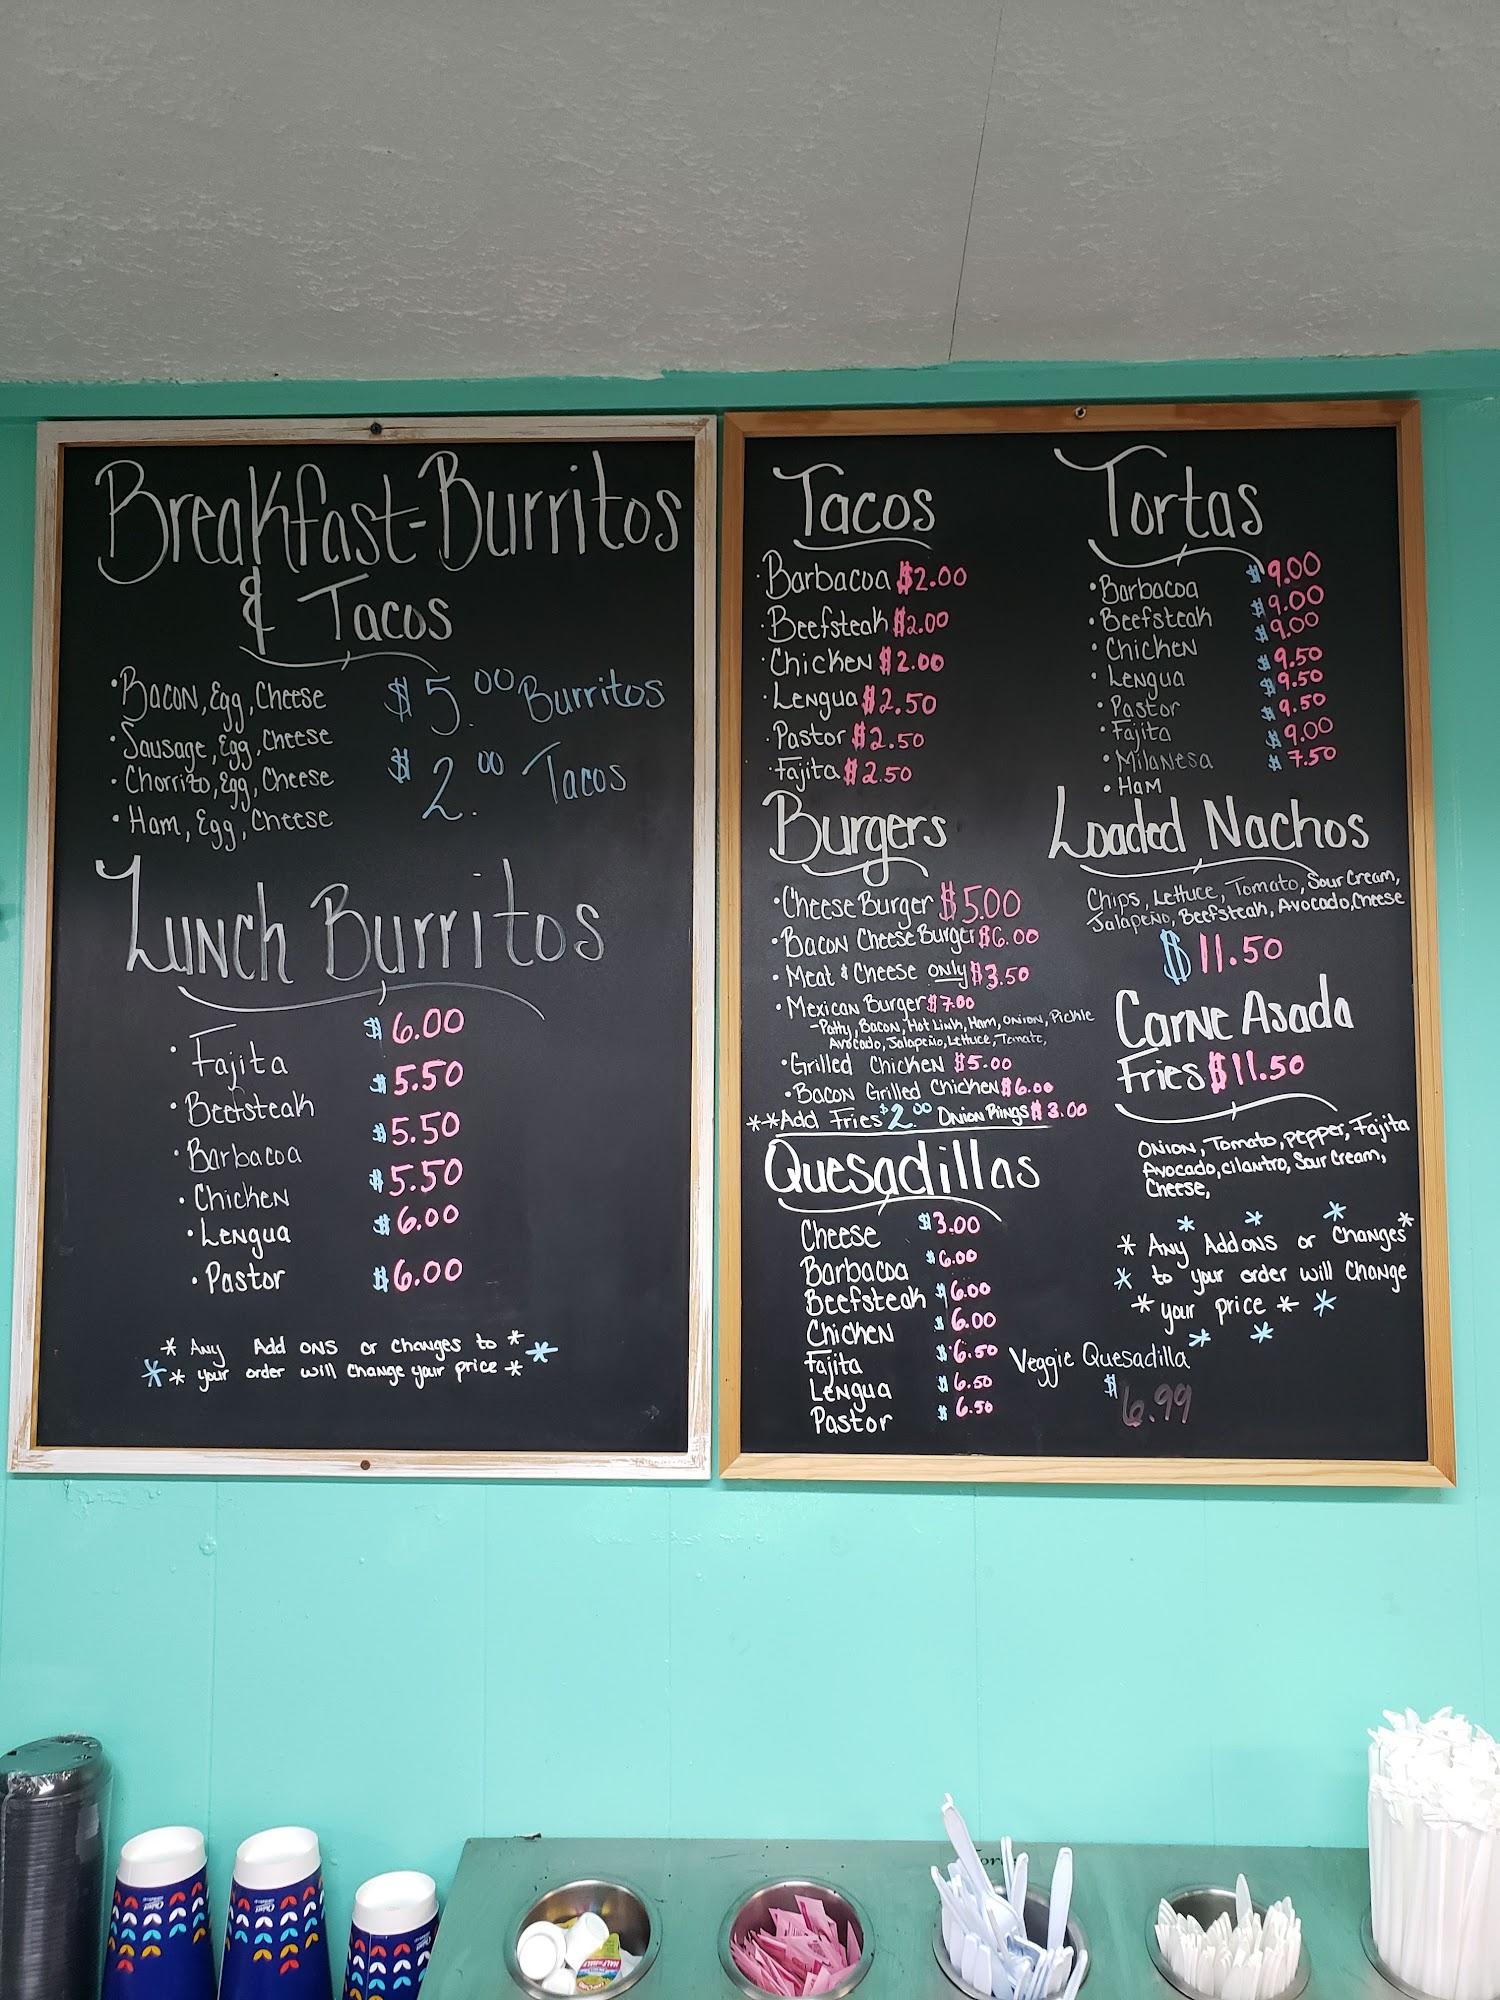 Breakfast-Burritos
& Tacos
• Bacon, Egg, Cheese
• Sausage, Egg, Cheese
• Chorrito, Egg, Cheese
• Ham, Egg, Cheese
$5.00 Burritos
$2.00 Tacos
Lunch Burritos
• Fajita $6.00
• Beefsteak $5.50
• Barbacoa $5.50
• Chicken $5.50
• Lengua $6.00
• Pastor $6.00
* Any Add ons or changes to *
* * your order will change your price * *
Tacos
• Barbacoa $2.00
• Beefsteak $2.00
• Chicken $2.00
• Lengua $2.50
• Pastor $2.50
• Fajita $2.50
Burgers
• Cheese Burger $5.00
• Bacon Cheese Burger $6.00
• Meat & Cheese only $3.50
• Mexican Burger $7.00
- Patty, Bacon, Hot Link, Ham, Onion, Pickle
Avocado, Jalapeño, Lettuce, Tomato,
• Grilled Chicken $5.00
• Bacon Grilled Chicken $6.00
**Add Fries $2.00 Onion Rings $3.00
Quesadillas
Cheese $3.00
Barbacoa $6.00
Beefsteak $6.00
Chicken $6.00
Fajita $6.50
Lengua $6.50
Pastor $6.50
Tortas
• Barbacoa $9.00
• Beefsteak $9.00
• Chicken $9.00
• Lengua $9.50
• Pastor $9.50
• Fajita $9.50
• Milanesa $9.00
• Ham $7.50
Loaded Nachos
Chips, Lettuce, Tomato, Sour Cream,
Jalapeño, Beefsteak, Avocado, Cheese
$11.50
Carne Asada
Fries $11.50
Onion, Tomato, pepper, Fajita
Avocado, cilantro, Sour Cream,
Cheese,
* Any Addons or changes *
* to your order will change
* your price * *
Veggie Quesadilla
$6.99